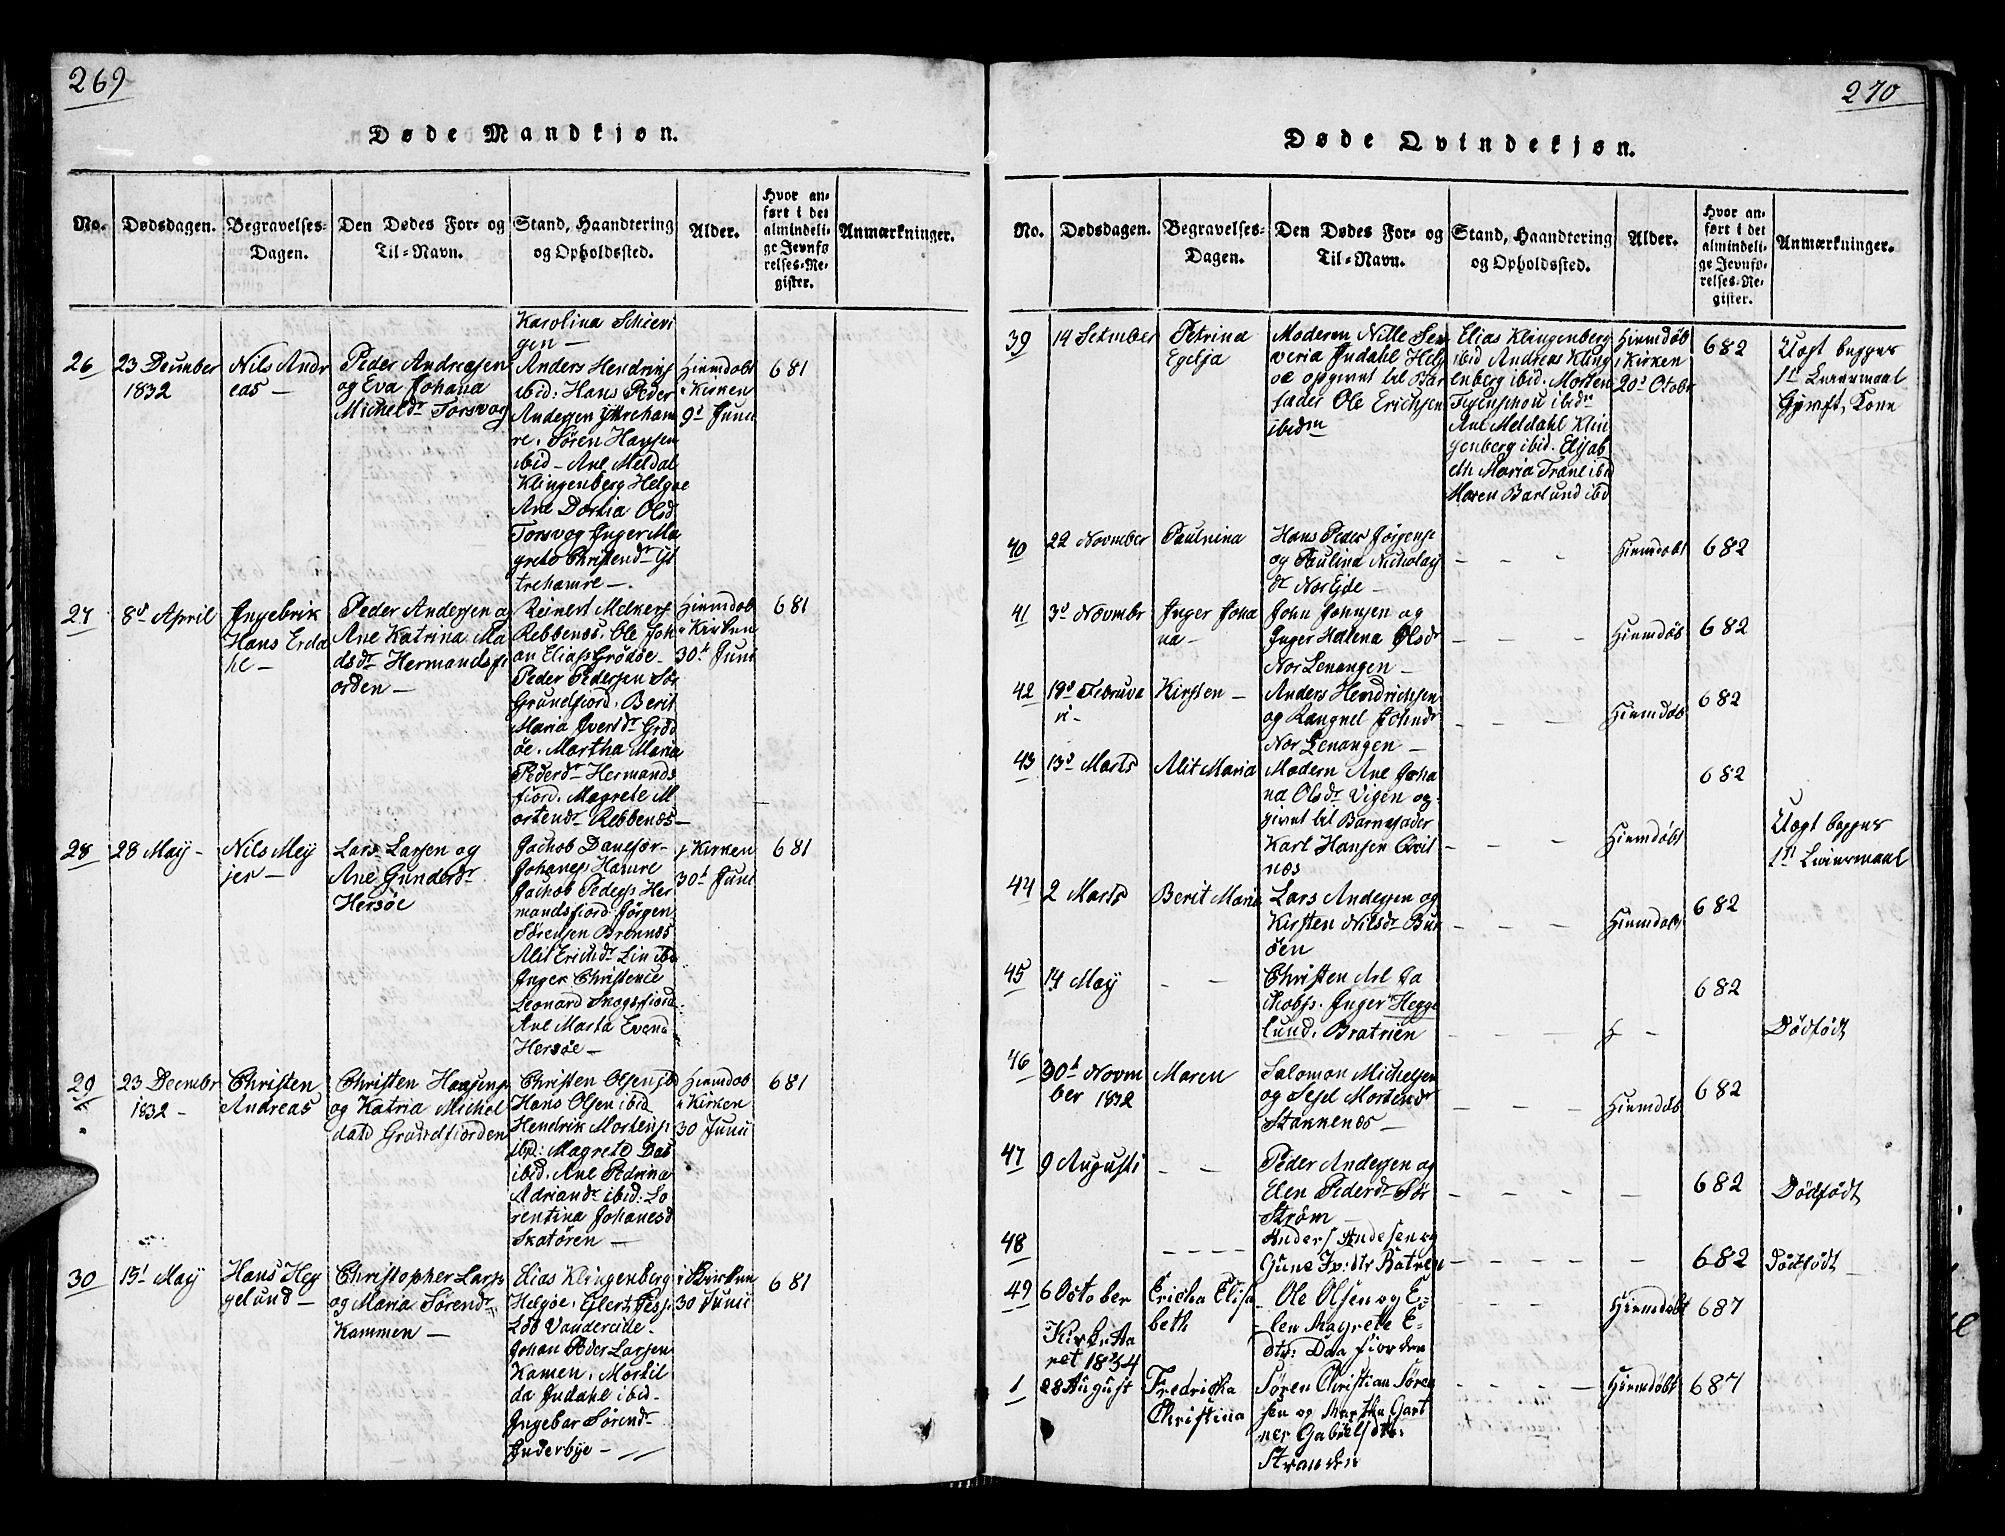 269
Døde Mandkjøn.
No.
Dødsdagen.
Begravelses-
Dagen.
Den Dødes For- og
Til-Navn.
Stand, Haandtering
og Opholdssted.
Alder.
Hvor an-
ført i det
almindeli-
ge Jevnfø
relses-Re-
gister.
Anmærkninger.
Karolina Schieri
gen –
26
23 December
1832
Nils Andr
eas –
Peder Andreasen
og Eva Johana
Micheldr Torsvog
Anders Hendrichs
ibid: Hans Peder
Andersen Yttreham
re. Sören Hansen
ibid – Ane Meldal
Klingenberg Helgøe
Ane Dorthia Olsd
Torsvog Inger Ma
greta Christendr Yt
trehamre –
Hiemdøbt
i Kirken
9d Junii
681
27
8d April
Ingebrik
Hans Erda
he –
Peder Andersen og
Ane Katrina Ma
dsdr Hermandsfi
orden –
Reinert Mekers
Rebbenes. Ole Joh
an Eliass Grödøe –
Peder Pedersen Sør
Grundfiord. Berit
Maria Iversdr Gröd
øe. Martha Maria
Pederdr Hermands
fiord. Magrete M
ortendr Rebbenes –
Hiemdøb
i Kirken
30d Juni
681
28
28 May –
Nils Mey
jer –
Lars Larsen og
Ane Gunderdr
Hersøe
Jachob Danefør –
Johanes Hamre
Jachob Pederss Her
mandsfiord Jörgen
Sörensen Brennes
Alit Erichdr Lin ibd
Inger Christence
Leonard Skogsfiord
Ane Marta Evend
Hersøe –
i Kirken
30d Juni
681
29
23 Decembr
1832 –
Christen
Andreas
Christen Hansens
og Katria Michel
datd Grundfiorden
Christen Olsen ibd
Hans Olsen ibid
Hendrik Mortens
ibid: Magrete Das
ibid. Ane Pedrina
Adriandr ibid. Lo
rentina Johanesd
Skatören –
Hiemdøb
i Kirken
30 Junii
681
30
15d May
Hans Hey
gelund –
Christopher Larss
og Maria Sörendr
Kammen –
Elias Klingenberg
Helgøe. Elert Pess
Löb Vandereide –
Johan Peder Larsen
Kamen. Mortil
da Indahl ibid –
Ingebor Sörendr
Inderbye –
i Kirken
30 Junii
681
270
Døde Qvindekjøn.
No.
Dødsdagen.
Begravelses-
Dagen.
Den Dødes For- og
Til-Navn.
Stand, Haandtering
og Opholdssted.
Alder.
Hvor an-
ført i det
almindeli-
ge Jevnfø-
relses-Re-
gister.
Anmærkninger.
39
14 Setmber
Petrina
Egelja
Moderen Nille Se
veria Indahl Helg
øe opgivet til Bar
fader Ole Erichsen
ibidm
Elias Klingenberg
ibid Andreas Kling
enberg ibid. Morten
Figenschou ibidm
Ane Meldahl Klin
genberg ibid. Elisab
eth Maria Trane ibd
Maren Barlund ibd
Hiemdøb
i Kirken
20d Otobr
682
Uægt begges
1te Leiermaal
40
22 Novmber
Paulnina
Hans Peder Jörgense
og Paulina Nicholay
dr Nor Eide –
– – –
Hiemdøbt
682
41
3d Novmbr
Inger Joha
na –
John Johnsen og
Inger Halena Olsdr
Nor Lenangen –
– – –
Hiemdøb
682
42
19d Februa
ri –
Kirsten –
Anders Hendrichsen
og Rangnel Johndr
Nor Lenangen –
– – –
Hiemdøb
682
43
13d Marts
Alit Maria
Modern Ane Joha
na Olsdr Vigen og
givet til Barnefader
Karl Hansen Qvit
nes
– – –
Hiemdøbt
682
Uægt begges
1ste Leiermaal
44
2 Marts
Berit Maria
Lars Andersen og
Kirsten Nilsdr Bur
øen
– – –
Hiemdøbt
682
45
14 May
– –
Christen Arl Ja
chobs. Inger Hegge
lund. Bratrien
– – –
682
Dødfødt
46
30d Novm
ber 1832
Maren
Salomon Michelsen
og Sesel Mortendr
Stakkenes –
– – –
Hiemdøb
682
47
9 Augusti
– –
Peder Andersen og
Elen Pederdr Sør
Strøm –
– – – –
682
Dødfødt
48
– – – –
Anders Andesen og
Gune Ivrdtr Batren
– – – –
682
Dødfødt
49
6 October
Ericha Elisa
beth
Ole Olsen og E=
len Magrete E=
dtr: Daafiorden
– – –
Hiemdøbt
687
Kirke Aa
ret 1834
1
28 August
Fredricha
Christina
Søren Christian Søren
sen og Martha Gart
ner Gabrielsdtr:
Stranden
– – – –
Hiemdøbt
687